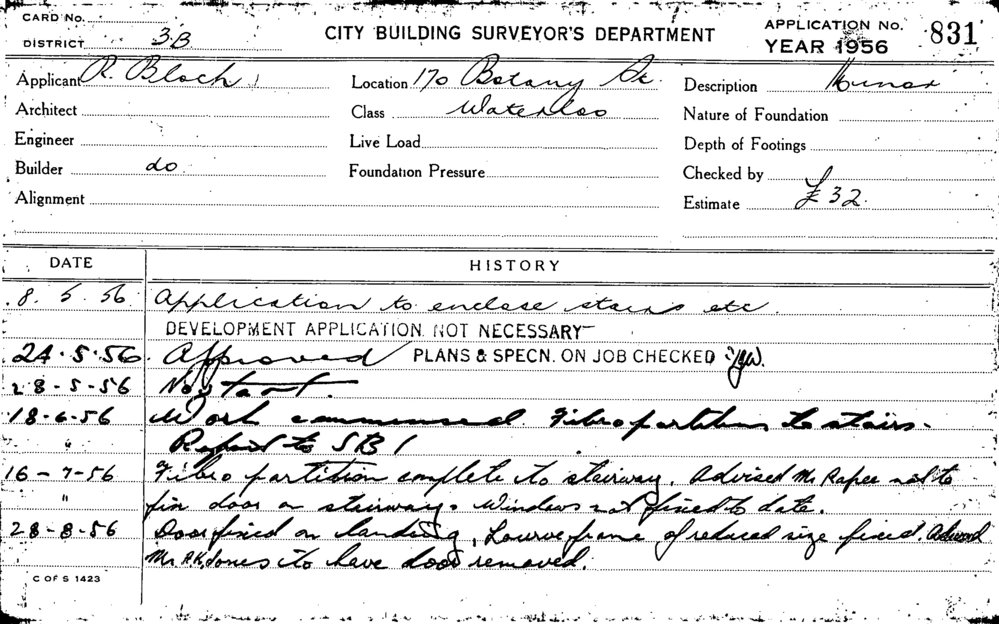 CARD No.
DISTRICT 3B
CITY BUILDING SURVEYOR'S DEPARTMENT
APPLICATION No. 831
YEAR 1956
Applicant R. Bloch
Location 170 Botany St.
Description Minor
Architect
Class Waterloo
Nature of Foundation
Engineer
Live Load
Depth of Footings
Builder do
Foundation Pressure
Checked by
Alignment
Estimate £32.
DATE HISTORY
8. 5. 56 Application to enclose stairs etc
DEVELOPMENT APPLICATION NOT NECESSARY
24.5.56. Approved PLANS & SPECN. ON JOB CHECKED
28-5-56 No start.
18-6-56 Work commenced. Fibro partitions to stairs.
" Report to SBI
16-7-56 Fibro partition complete to stairway. Advised Mr not to
" fix door on stairway. Windows not fixed to date.
28-8-56 Door fixed on landing, Louvre frame of reduced size fixed. Advised
Mr Jones to have door removed.
C OF S 1423